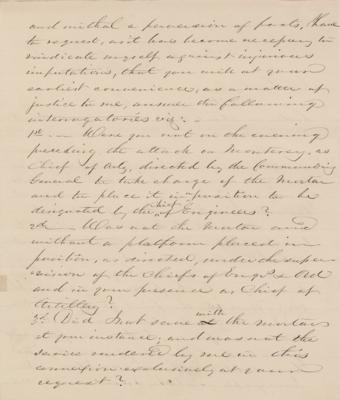 and withal a perversion of facts, I have
to request, as it has become necessary to
vindicate myself against injurious
imputations, that you will at your
earliest convenience, as a matter of
justice to me, answer the following
interrogatories viz:
1st Were you not on the evening
preceding the attack on Monterey, as
Chief of Arty, directed by the Commanding
General to take charge of the Mortar
and to place it in position to be
designated by the Chief of Engineers?
2d Was not the Mortar and
without a platform placed in
position, as directed, under the super-
vision of the Chiefs of Engrs & Art
and in your presence as Chief of
Artillery?
3d Did I not serve with the mortar
at your instance; and was not the
service rendered by me in this
connexion exclusively at your
request?